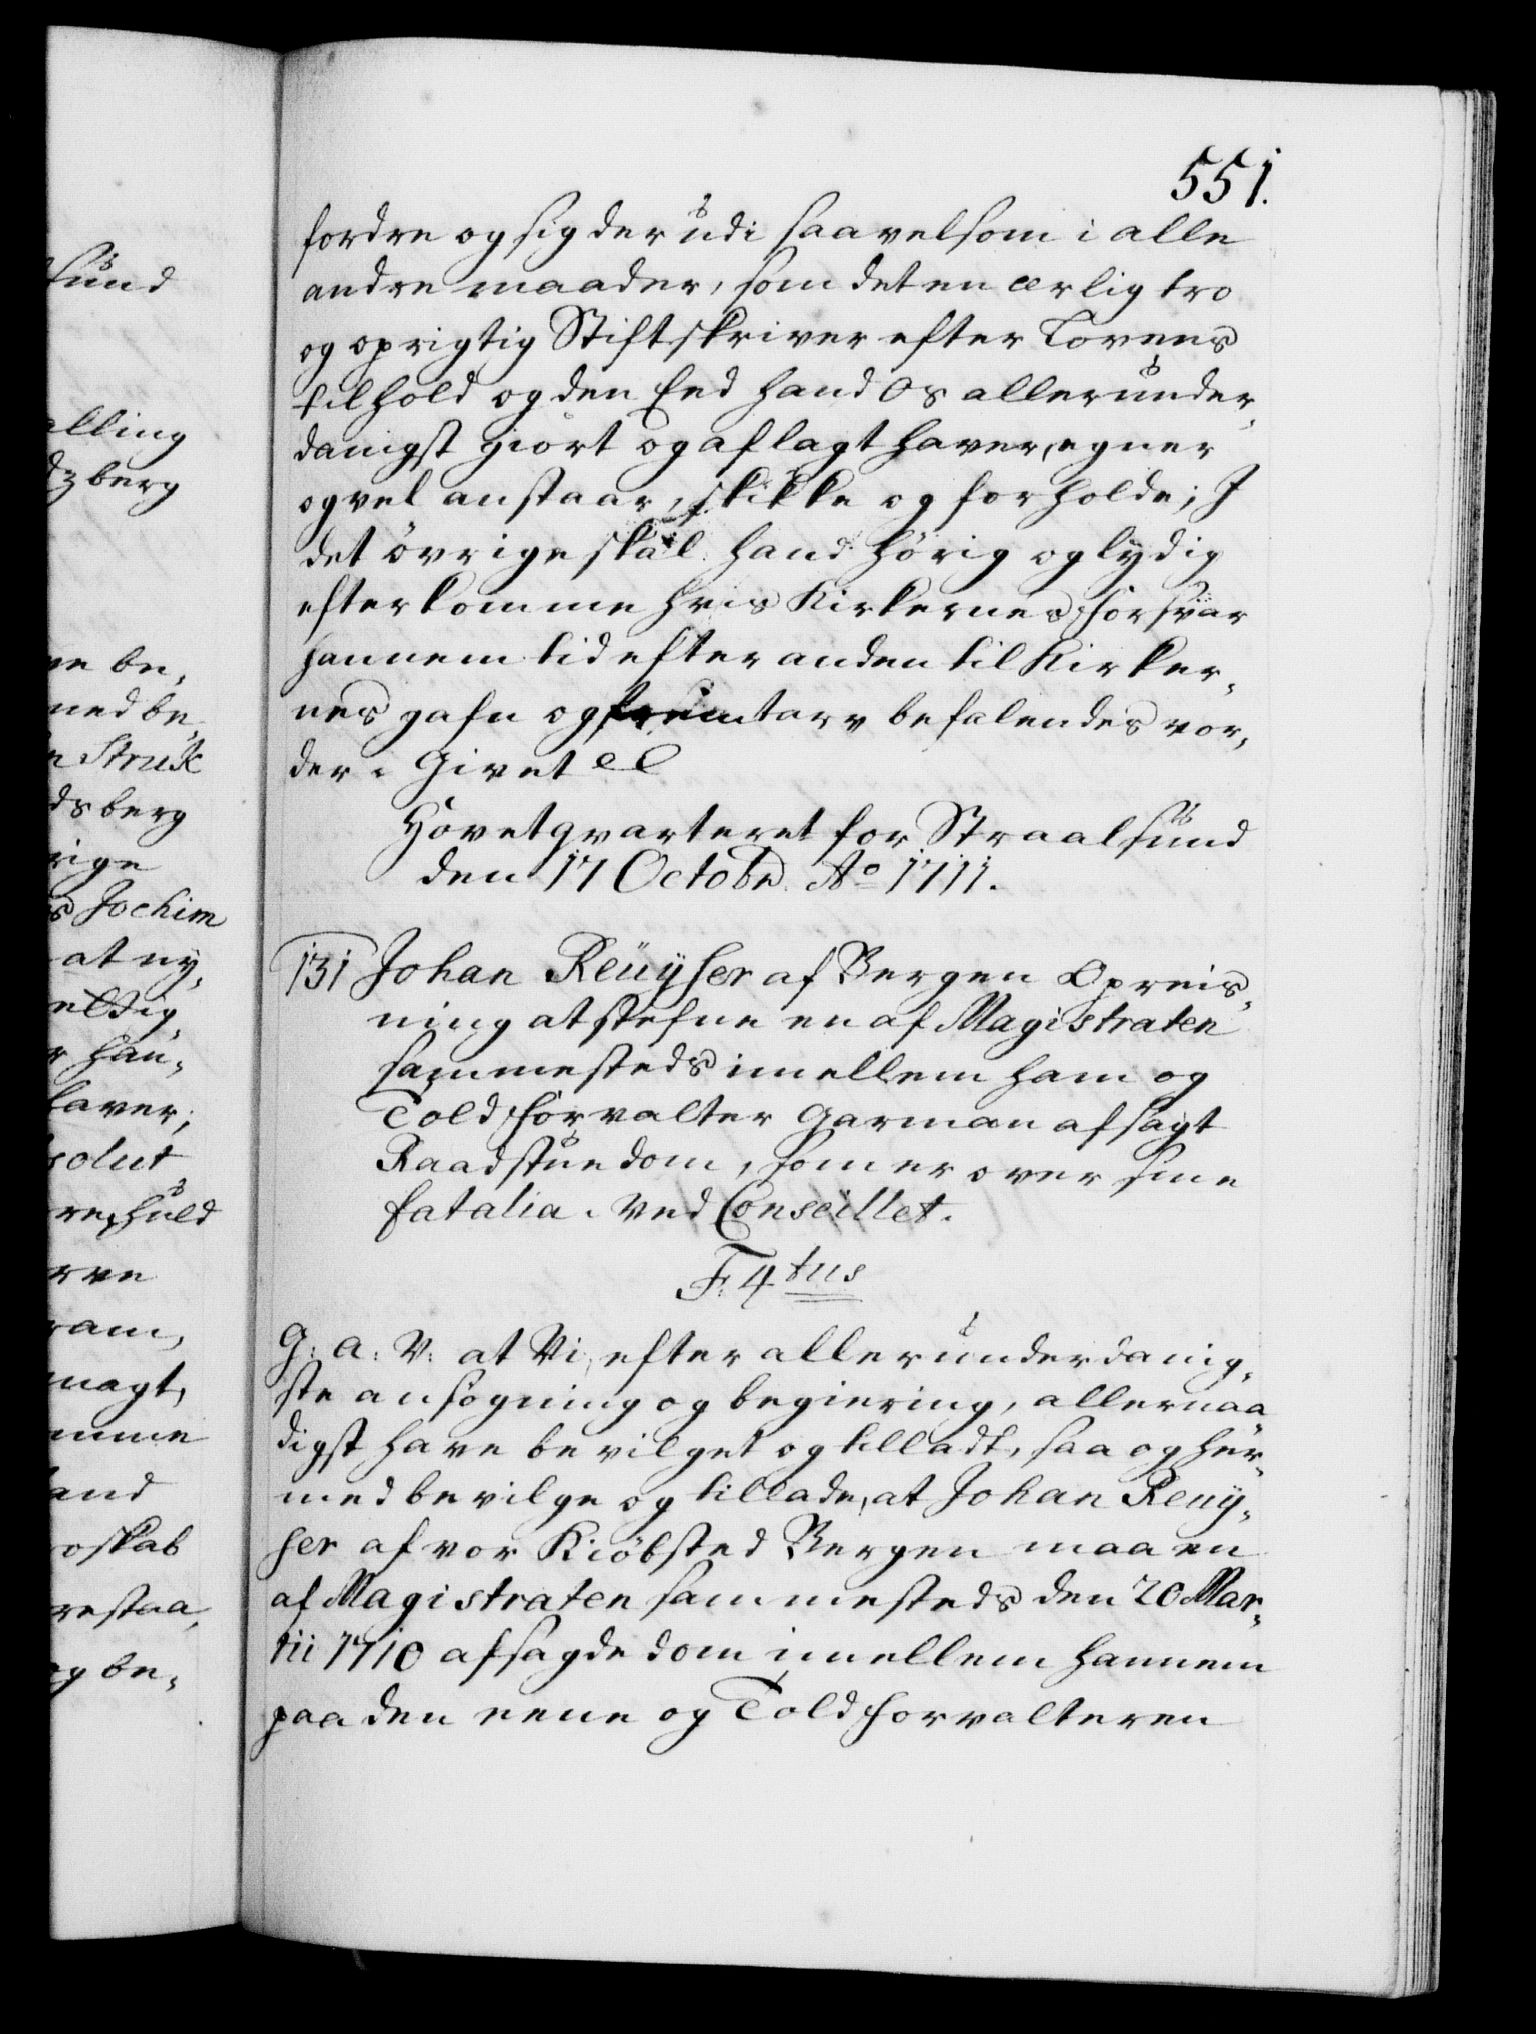 551.
fordre og sig der udi saavelsom i alle
andre maader, som det en ærlig tro
og oprigtig Stiftskriver efter Lovens
tilhold og den Eed hand Os allerunder,
danigst giort og aflagt haver, egner
og vel anstaar, skikke og forholde; J
det övrige skal hand hörig og lydig
efterkomme hvis Kirkernes forsvar
hannem tid efter anden til Kirker,
nes gafn og tarv befalendes vor,
der. Givet
Hovetqvarteret for Straalsund
den 17 Octobr. Ao 1711.
131 Johan Reüÿser af Bergen Opreis,
ning at stefne en af Magistraten
sammesteds imellem ham og
Toldforvalter Garman afsagt
Raadstue dom, som er over sine
fatalia. Ved Conseillet.
F: 4tus
G: A: V: at Vi, efter allerunderdanig,
ste ansögning og begiering, allernaa,
digst have bevilget og tilladt, saa og her,
med bevilge og tillade, at Johan Reuÿ,
ser af vor Kiöbsted Bergen maa en
af Magistraten sammesteds den 20 Mar,
tii 1710 afsagde dom imellem hannem
paa den eene og Toldforvalteren
sund
alling
dzberg
ve be,
med be,
n Struk
dsberg
rige
s Jochim
at ny,
han,
laver;
solut
re, huld
rve
magt,
and
oskab
restaa,
og be,